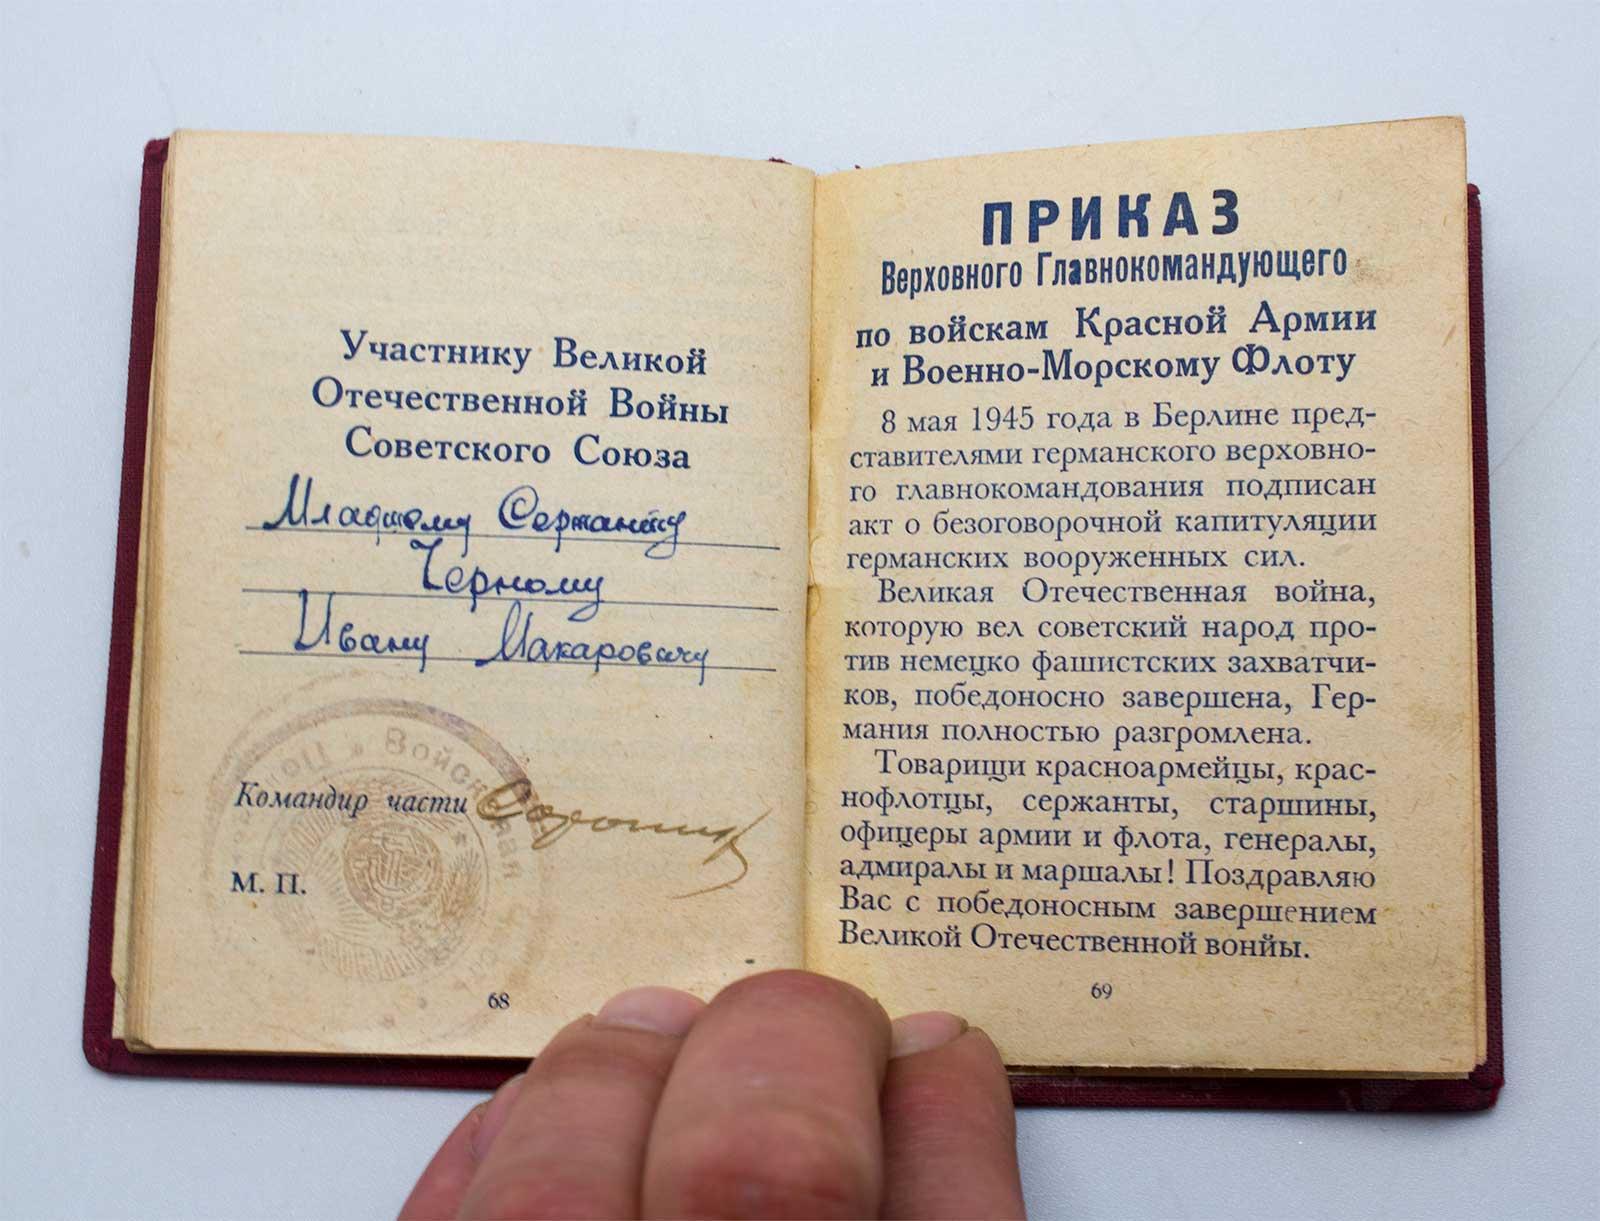 Участнику Великой
Отечественной Войны
Советского Союза
Младшому Сержанту
Черному
Ивану Макаровичу
Командир части
М. П.
Войсковая
68
ПРИКАЗ
Верховного Главнокомандующего
по войскам Красной Армии
и Военно-Морскому Флоту
8 мая 1945 года в Берлине пред-
ставителями германского верховно-
го главнокомандования подписан
акт о безоговорочной капитуляции
германских вооруженных сил.
Великая Отечественная война,
которую вел советский народ про-
тив немецко фашистских захватчи-
ков, победоносно завершена, Гер-
мания полностью разгромлена.
Товарищи красноармейцы, крас-
нофлотцы, сержанты, старшины,
офицеры армии и флота, генералы,
адмиралы и маршалы! Поздравляю
Вас с победоносным завершением
Великой Отечественной вонйы.
69